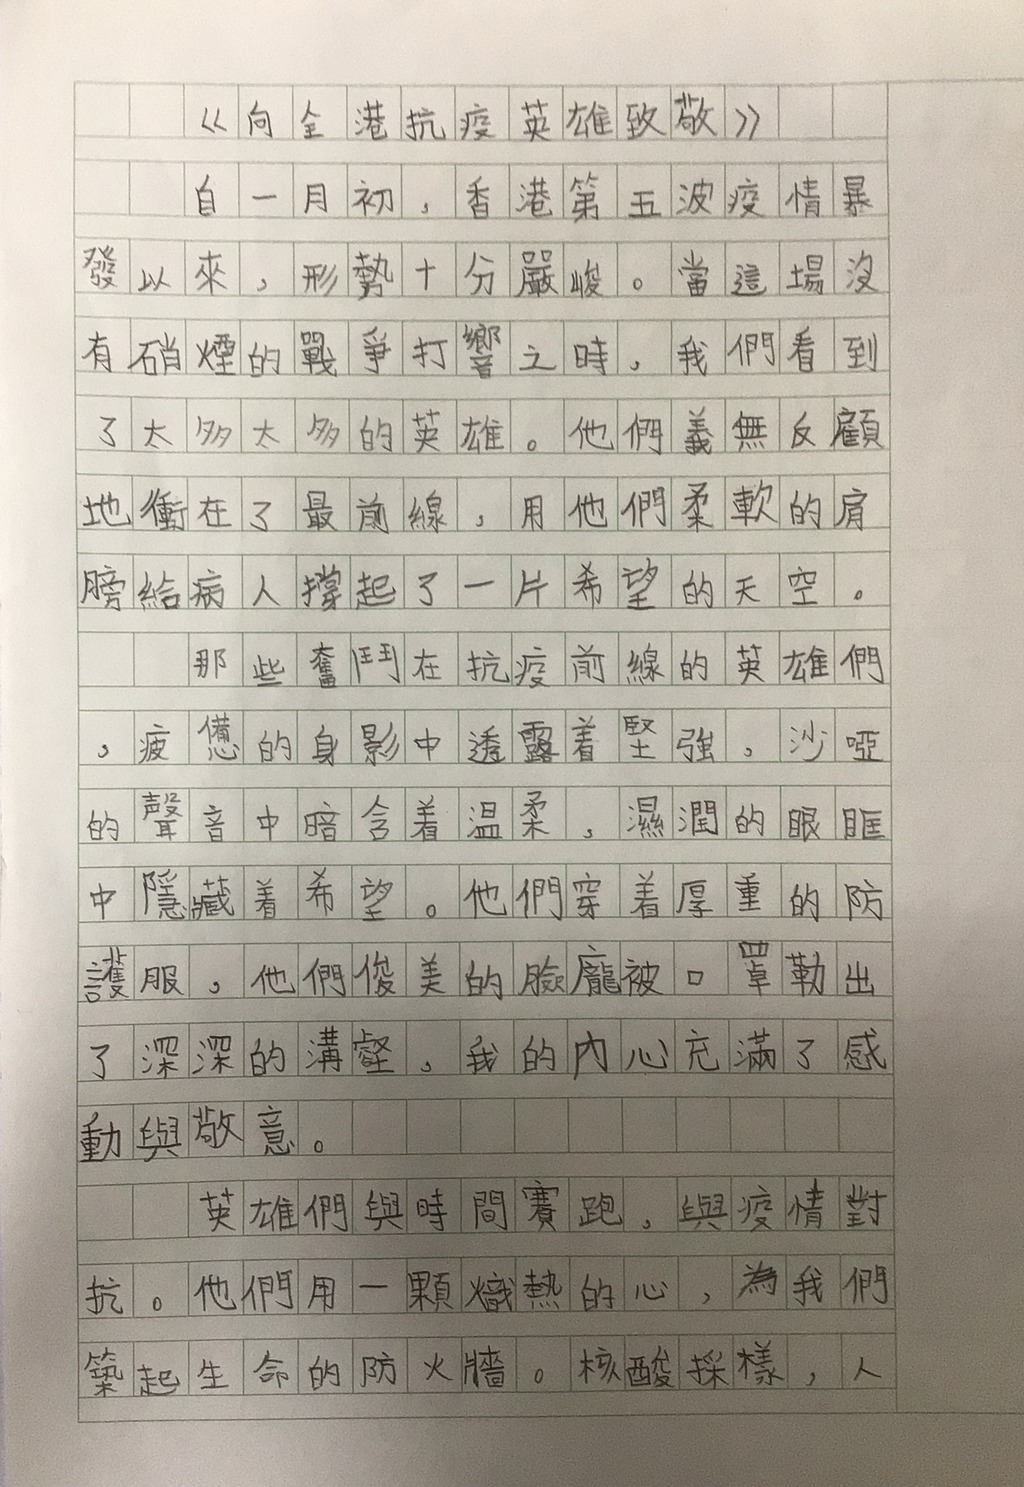 《向全港抗疫英雄致敬》
自一月初，香港第五波疫情暴
發以來，形勢十分嚴峻。當這場沒
有硝煙的戰爭打響之時，我們看到
了太多太多的英雄。他們義無反顧
地衝在了最前線，用他們柔軟的肩
膀給病人撐起了一片希望的天空。
那些奮鬥在抗疫前線的英雄們
，疲憊的身影中透露着堅強，沙啞
的聲音中暗含着溫柔，濕潤的眼眶
中隱藏着希望。他們穿着厚重的防
護服，他們俊美的臉龐被口罩勒出
了深深的溝壑，我的內心充滿了感
動與敬意。
英雄們與時間賽跑，與疫情對
抗。他們用一顆熾熱的心，為我們
築起生命的防火牆。核酸採樣，人